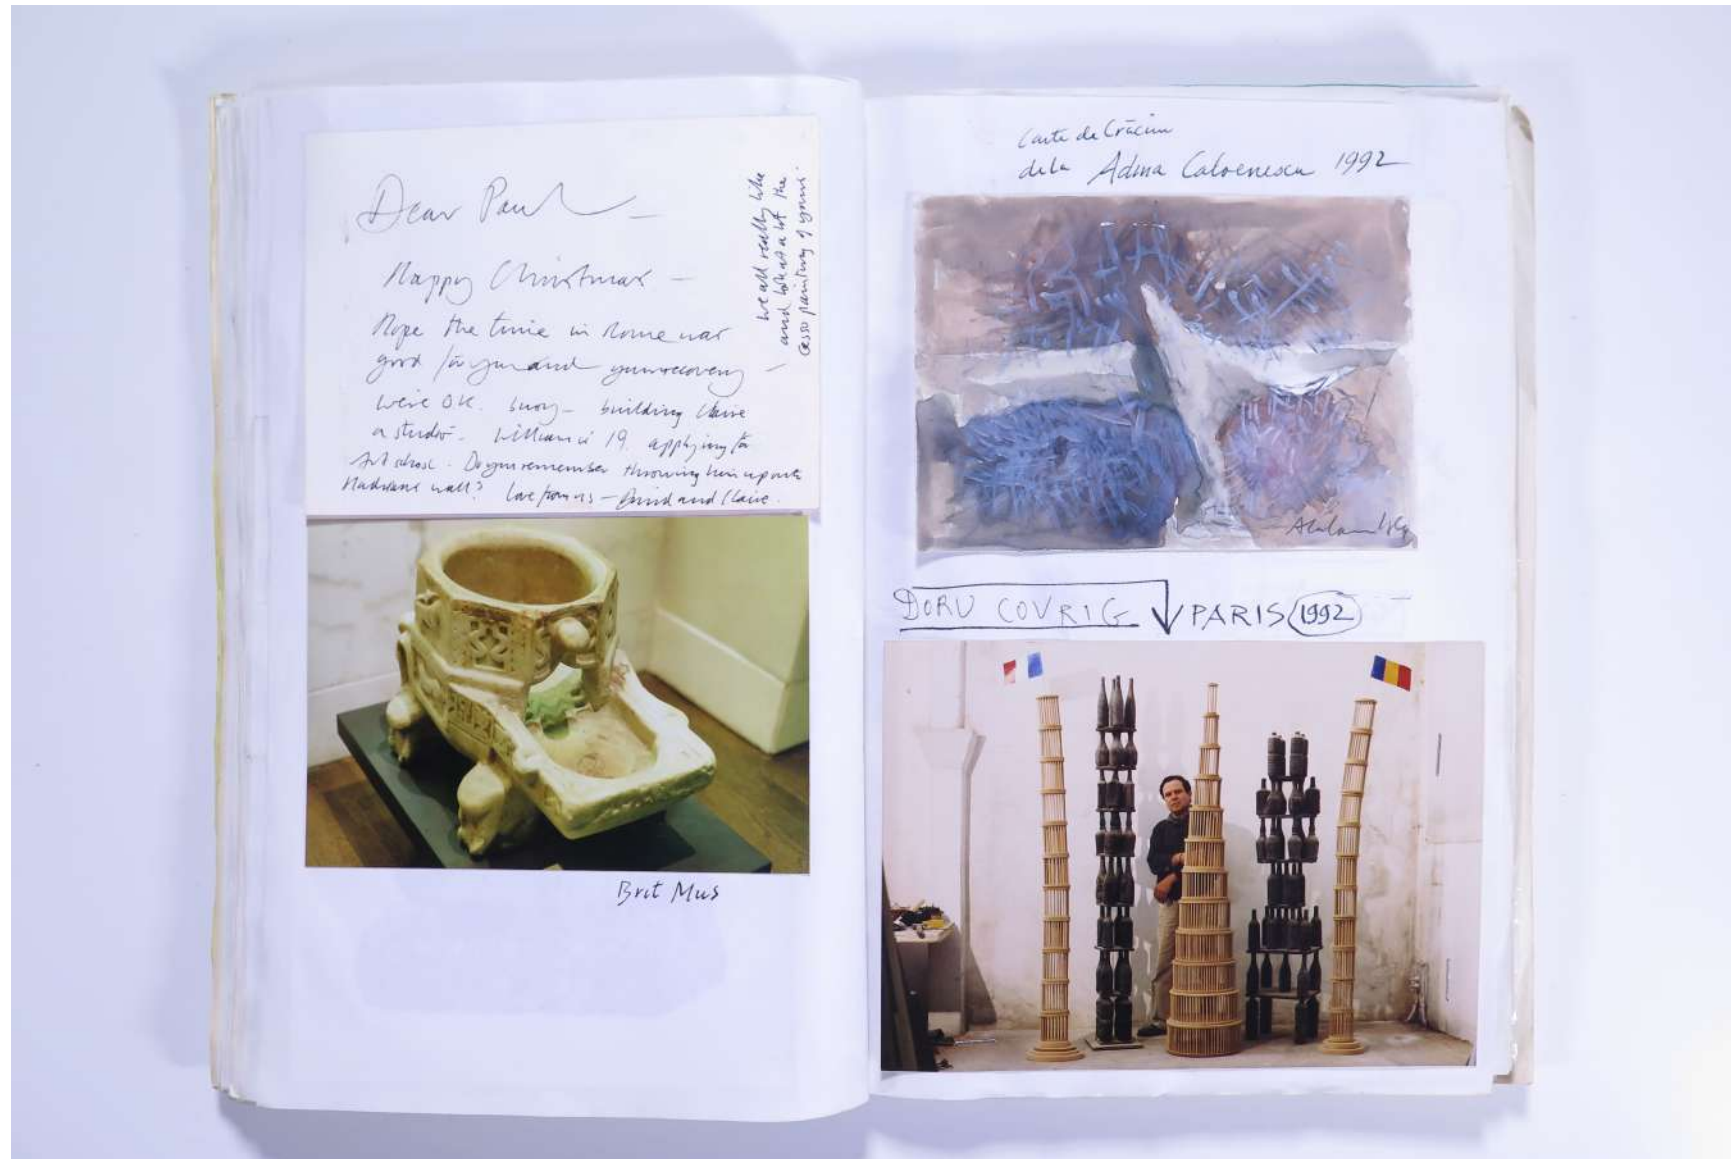 Dear Paul —
Happy Christmas —
Hope the time in Rome was
good for you and your recovery —
We're OK. busy — building Claire
a studio. William is 19. applying to
Art school. Do you remember throwing him up onto
Hadrians wall? Love from us — David and Claire.
we all really like
and look at a lot the
gesso painting of yours.
Brit Mus
Carte de Crăciun
dela Adina Caloenescu 1992
DORU COVRIG PARIS 1992